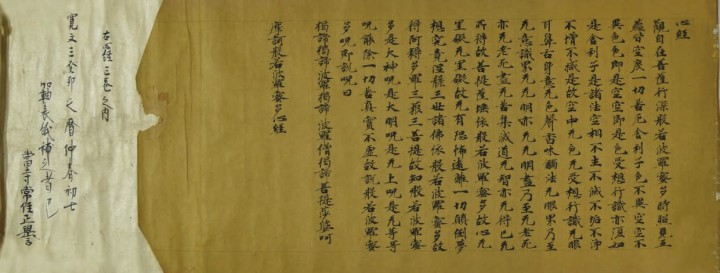 心經
觀自在菩薩行深般若波羅蜜多時照見五
蘊皆空度一切苦厄舍利子色不異空空不
異色色即是空空即是色受想行識亦復如
是舍利子是諸法空相不生不滅不垢不淨
不增不減是故空中无色无受想行識无眼
耳鼻舌身意无色聲香味觸法无眼界乃至
无意識界无无明亦无无明盡乃至无老死
亦无老死盡无苦集滅道无智亦无得已无
所得故菩提薩埵依般若波羅蜜多故心无
罣礙无罣礙故无有恐怖遠離一切顛倒夢
想究竟涅槃三世諸佛依般若波羅蜜多故
得阿耨多羅三藐三菩提故知般若波羅蜜
多是大神呪是大明呪是无上呪是无等等
呪能除一切苦真實不虛故說般若波羅蜜
多呪即說呪曰
揭諦揭諦波羅揭諦波羅僧揭諦菩提薩婆呵
摩訶般若波羅蜜多心經
三卷之内
寛文三癸卯之暦仲春初七
加軸表紙補
當寺常住正